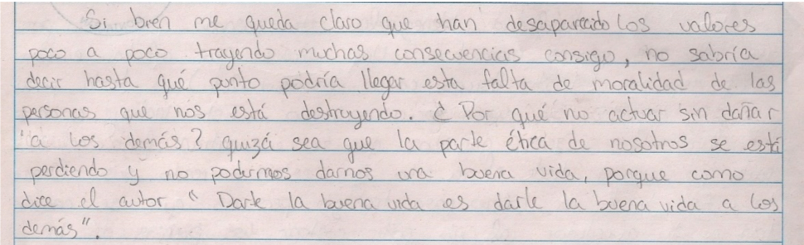 Si bien me queda claro que han desaparecido los valores
poco a poco trayendo muchas consecuencias consigo, no sabría
decir hasta qué punto podría llegar esta falta de moralidad de las
personas que nos está destruyendo. ¿Por qué no actuar sin dañar
a los demás? quizá sea que la parte ética de nosotros se está
perdiendo y no podemos darnos una buena vida, porque como
dice el autor "Darle la buena vida es darle la buena vida a los
demás".